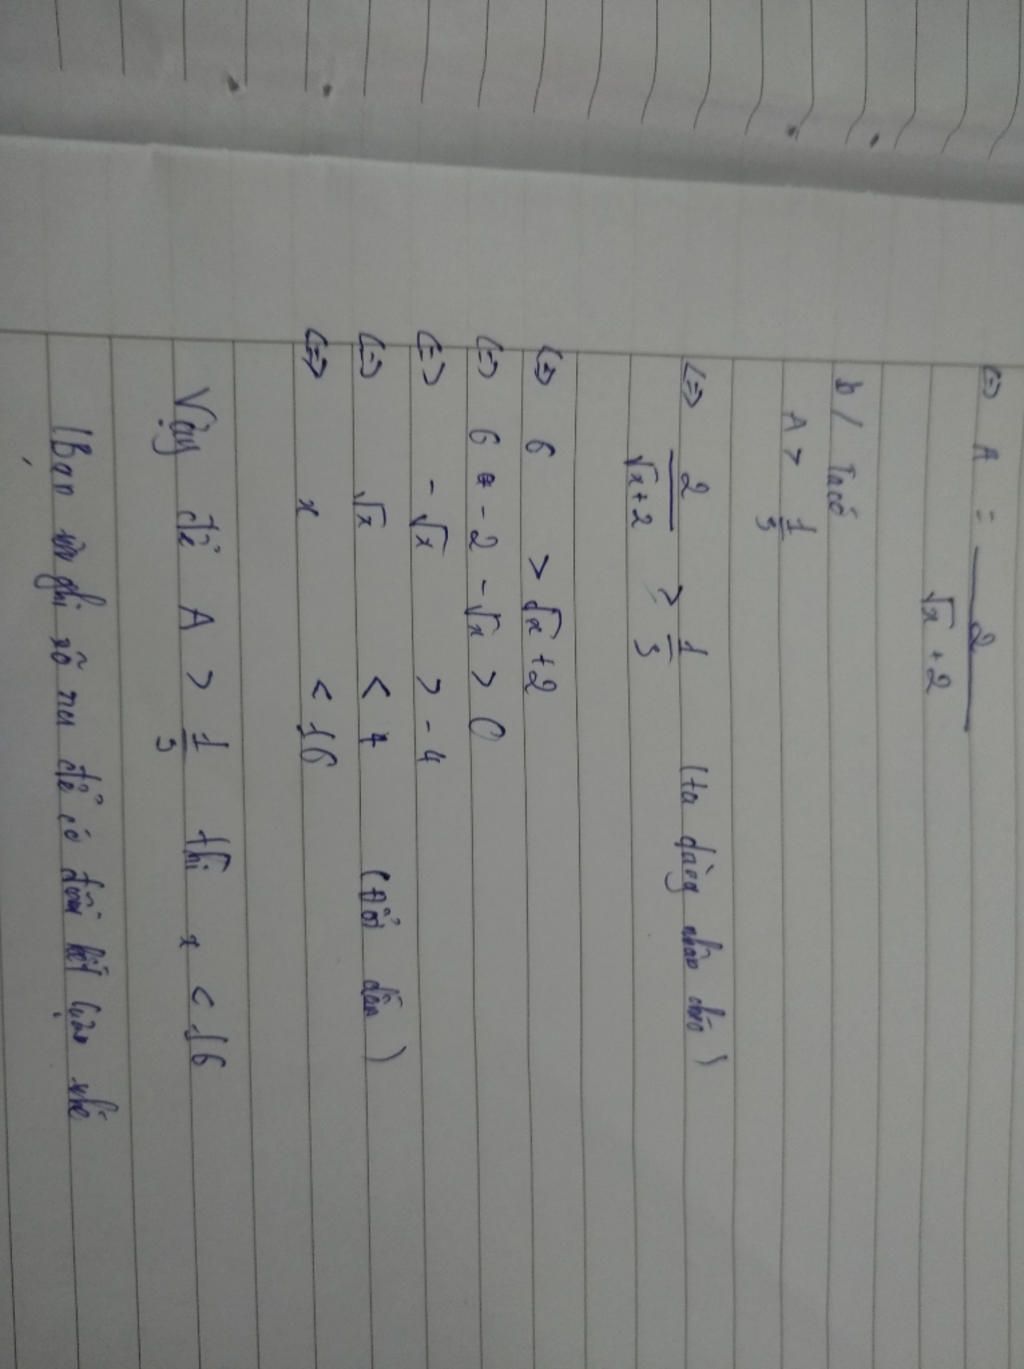 (=) A = 2 / √x + 2
b / Ta có
A > 1/3
(=) 2 / √x + 2 > 1/3 (ta dùng nhân chéo)
(=) 6 > √x + 2
(=) 6 - 2 - √x > 0
(=) - √x > - 4
(=) √x < 4 (Đổi dấu)
(=) x < 16
Vậy để A > 1/3 thì x < 16
(Bạn ghi rõ ra để có kết luận nhé